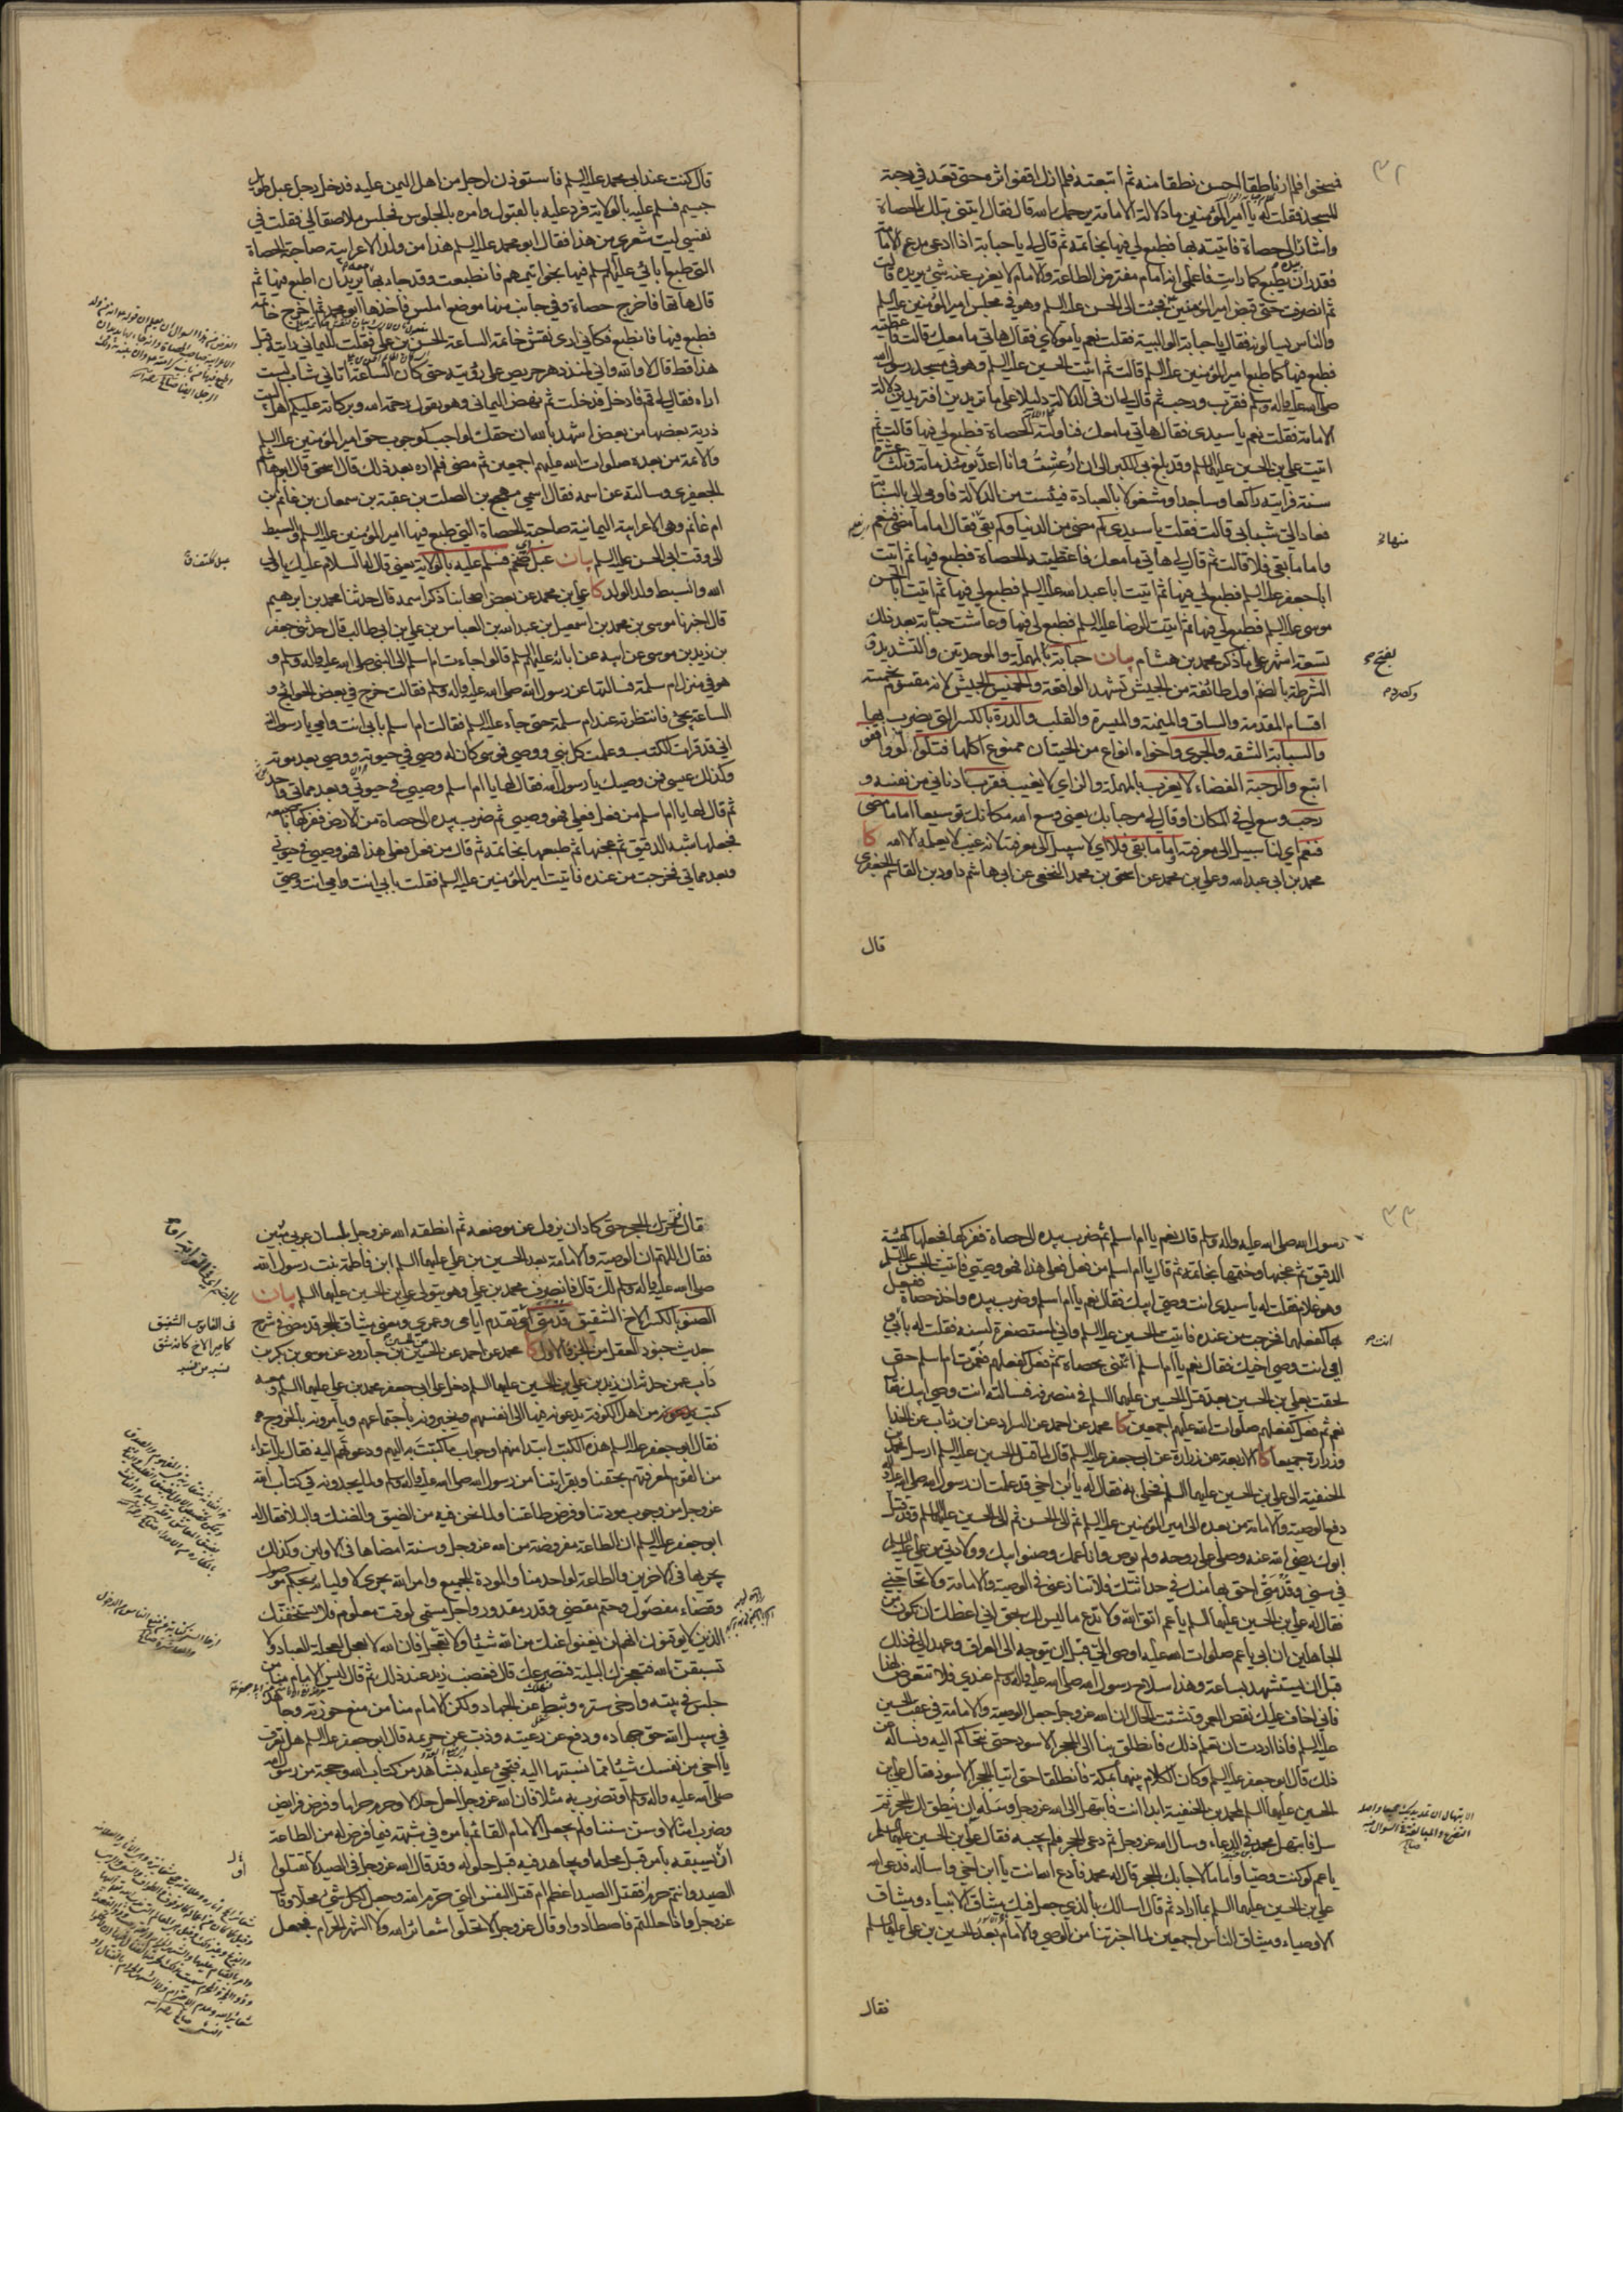 فمسخوا فلم ار ناطقا احسن نطقا منه ثم اتبعته فلم ازل اقفوا اثره حتى قعد في رحبة
المسجد فقلت له يا امير المؤمنين ما دلالة الامامة يرحمك الله قال فقال ايتني بتلك الحصاة
واشار الى حصاة فاتيته بها فطبع لي فيها بخاتمه ثم قال لي يا حبابة اذا ادعى مدع الامامة
فقدر ان يطبع كما رايت فاعلمي انه امام مفترض الطاعة والامام لا يعزب عنه شئ يريده قالت
ثم انصرفت حتى قبض امير المؤمنين فجئت الى الحسن عليه السلم وهو في مجلس امير المؤمنين عليه السلم
والناس يسالونه فقال يا حبابة الوالبية فقلت نعم يا مولاي فقال هاتي ما معك قالت فاعطيته
فطبع فيها كما طبع امير المؤمنين عليه السلم قالت ثم اتيت الحسين عليه السلم وهو في مسجد رسول الله
صلى الله عليه واله وسلم فقرب ورحب ثم قال لي ان في الدلالة دليلا على ما تريدين افتريدين دلالة
الامامة فقلت نعم يا سيدي فقال هاتي ما معك فناولته الحصاة فطبع لي فيها قالت ثم
اتيت علي بن الحسين عليهما السلم وقد بلغ بي الكبر الى ان ارعشت وانا اعد يومئذ مائة وثلث عشرة
سنة فرايته راكعا وساجدا ومشغولا بالعبادة فيئست من الدلالة فاومى الي بالسبابة
فعاد الي شبابي قالت فقلت يا سيدي كم مضى من الدنيا وكم بقي فقال اما ما مضى فنعم
واما ما بقي فلا قالت ثم قال لي هاتي ما معك فاعطيته الحصاة فطبع فيها ثم اتيت
منهانخ
ابا جعفر عليه السلم فطبع لي فيها ثم اتيت ابا عبد الله عليه السلم فطبع لي فيها ثم اتيت ابا الحسن
موسى عليه السلم فطبع لي فيها ثم اتيت الرضا عليه السلم فطبع لي فيها وعاشت حبابة بعد ذلك
تسعة اشهر على ما ذكر محمد بن هشام بيان حبابة بالمهملة والموحدتين والتشديد و
الشرطة بالضم اول طائفة من الجيش تشهد الواقعة والخميس الجيش لانه مقسوم بخمسة
اقسام المقدمة والساق والميمنة والميسرة والقلب والدرة بالكسر التي يضرب بها
والسبابة الشقه والجري واخواه انواع من الحيتان ممنوع اكلها فتلوا لووا اقفو
اتبع والرحبة الفضاء لا يعزب بالمهملة والزاي لا يغيب فقرب ادناني من نفسه و
رحب وسع لي في المكان او قال لي مرحبا بك يعني وسع الله مكانك توسيعا اما ما مضى
فنعم اي لنا سبيل الى معرفته واما ما بقي فلا اي لا سبيل الى معرفته لانه غيب لا يعلمه الا الله كا
محمد بن ابي عبد الله وعلي بن محمد عن اسحق بن محمد النخعي عن ابي هاشم داود بن القاسم الجعفري
قال
قال كنت عند ابي محمد عليه السلم فاستوذن لرجل من اهل اليمن عليه فدخل رجل عبل طويل
جسيم فسلم عليه بالولاية فرد عليه بالقبول وامره بالجلوس فجلس ملاصقا لي فقلت في
نفسي ليت شعري من هذا فقال ابو محمد عليه السلم هذا من ولد الاعرابية صاحبة الحصاة
التي طبع ابائي عليهم السلم فيها بخواتيمهم فانطبعت وقد جاء بها معه يريد ان اطبع فيها ثم
قال هاتها فاخرج حصاة وفي جانب منها موضع املس فاخذها ابو محمد ثم اخرج خاتمه
فطبع فيها فانطبع فكاني ارى نقش خاتمه الساعة الحسن بن علي فقلت لليماني رايته قبل
هذا قط قال لا والله واني لمنذ دهر حريص على رؤيته حتى كان الساعة اتاني شاب لست
اراه فقال لي قم فادخل فدخلت ثم نهض اليماني وهو يقول رحمة الله وبركاته عليكم اهل البيت
ذرية بعضها من بعض اشهد بالله ان حقك لواجب كوجوب حق امير المؤمنين عليه السلم
والائمة من بعده صلوات الله عليهم اجمعين ثم مضى فلم اره بعد ذلك قال اسحق قال ابو هاشم
الجعفري وسالته عن اسمه فقال اسمي مهجع بن الصلت بن عقبة بن سمعان بن غانم بن
ام غانم وهي الاعرابية اليمانية صاحبة الحصاة التي طبع فيها امير المؤمنين عليه السلم والسبط
الى وقت ابي الحسن عليه السلم بيان عبل ضخم فسلم عليه بالولاية يعني قال له السلام عليك يا ولي
الله والسبط ولد الولد كا علي بن محمد عن بعض اصحابنا ذكر اسمه قال حدثنا محمد بن ابرهيم
قال اخبرنا موسى بن محمد بن اسمعيل بن عبد الله بن العباس بن علي بن ابي طالب قال حدثني جعفر
بن زيد بن موسى عن ابيه عن ابائه عليهم السلم قالوا جاءت ام اسلم الى النبي صلى الله عليه واله وسلم و
هو في منزل ام سلمة فسالتها عن رسول الله صلى الله عليه واله وسلم فقالت خرج في بعض الحوائج و
الساعة يجئ فانتظرته عند ام سلمة حتى جاء عليه السلم فقالت ام اسلم بابي انت وامي يا رسول الله
اني قد قرات الكتب وعلمت كل نبي ووصي فموسى كان له وصي في حيوته ووصي بعد موته
وكذلك عيسى فمن وصيك يا رسول الله فقال لها يا ام اسلم وصيي في حيوتي وبعد مماتي واحد
ثم قال لها يا ام اسلم من فعل فعلي فهو وصيي ثم ضرب بيده الى حصاة من الارض ففركها باصبعه
فجعلها شبه الدقيق ثم عجنها ثم طبعها بخاتمه ثم قال من فعل فعلي هذا فهو وصيي في حيوتي
وبعد مماتي فخرجت من عنده فاتيت امير المؤمنين عليه السلم فقلت بابي انت وامي انت وصي
رسول الله صلى الله عليه واله وسلم قال نعم يا ام اسلم ثم ضرب بيده الى حصاة ففركها فجعلها كهيئة
الدقيق ثم عجنها وختمها بخاتمه ثم قال يا ام اسلم من فعل فعلي هذا فهو وصيي فاتيت الحسن عليه السلم
وهو غلام فقلت له يا سيدي انت وصي ابيك فقال نعم يا ام اسلم وضرب بيده واخذ حصاة ففعل
بها كفعلهما فخرجت من عنده فاتيت الحسين عليه السلم واني لمستصغرة لسنه فقلت له بابي و
امي انت وصي اخيك فقال نعم يا ام اسلم ائتني بحصاة ثم فعل كفعلهم فعمرت ام اسلم حتى
لحقت بعلي بن الحسين بعد قتل الحسين عليهما السلم في منصرفه فسالته انت وصي ابيك فقال
نعم ثم فعل كفعلهم صلوات الله عليهم اجمعين كا محمد عن احمد عن السراد عن ابن رئاب عن الحذاء
وزرارة جميعا كا الاربعة عن زرارة عن ابي جعفر عليه السلم قال لما قتل الحسين عليه السلم ارسل محمد
الحنفية الى علي بن الحسين عليهما السلم فخلى به فقال له يا ابن اخي قد علمت ان رسول الله صلى الله عليه واله
دفع الوصية والامامة من بعده الى امير المؤمنين عليه السلم ثم الى الحسن ثم الى الحسين عليهما السلم وقد قتل
ابوك رضي الله عنه وصلى على روحه ولم يوص وانا عمك وصنو ابيك وولادتي من علي عليه السلم
في سني وقدمتي احق بها منك في حداثتك فلا تنازعني في الوصية والامامة ولا تحاجني
فقال له علي بن الحسين عليهما السلم يا عم اتق الله ولا تدع ما ليس لك بحق اني اعظك ان تكون من
الجاهلين ان ابي يا عم صلوات الله عليه اوصى الي قبل ان يتوجه الى العراق وعهد الي في ذلك
قبل ان يستشهد بساعة وهذا سلاح رسول الله صلى الله عليه واله وسلم عندي فلا تتعرض لهذا
فاني اخاف عليك نقص العمر وتشتت الحال ان الله عز وجل جعل الوصية والامامة في عقب الحسين
عليه السلم فاذا اردت ان تعلم ذلك فانطلق بنا الى الحجر الاسود حتى نتحاكم اليه ونساله عن
ذلك قال ابو جعفر عليه السلم وكان الكلام بينهما بمكة فانطلقا حتى اتيا الحجر الاسود فقال علي بن
الحسين عليهما السلم لمحمد بن الحنفية ابدا انت فابتهل الى الله عز وجل وسله ان ينطق لك الحجر ثم
سل فابتهل محمد في الدعاء وسال الله عز وجل ثم دعى الحجر فلم يجبه فقال علي بن الحسين عليهما السلم
يا عم لو كنت وصيا واماما لاجابك الحجر قال له محمد فادع الله انت يا ابن اخي واساله فدعى الله
علي بن الحسين عليهما السلم بما اراد ثم قال اسالك بالذي جعل فيك ميثاق الانبياء وميثاق
الاوصياء وميثاق الناس اجمعين لما اخبرتنا من الوصي والامام بعد الحسين بن علي عليهما السلم
فقال
قال فتحرك الحجر حتى كاد ان يزول عن موضعه ثم انطقه الله عز وجل بلسان عربي مبين
فقال اللهم ان الوصية والامامة بعد الحسين بن علي عليهما السلم ابن فاطمة بنت رسول الله
صلى الله عليه واله وسلم لك قال فانصرف محمد بن علي وهو يتولى علي بن الحسين عليهما السلم بيان
الصنو بالكسر الاخ الشقيق قدمتي اي تقدم ايامي وعمري ومعنى ميثاق الحجر قد مضى في شرح
حديث جنود العقل من الجزء الاول كا محمد عن احمد عن الحسين بن جارود عن موسى بن بكر بن
داب عمن حدثه ان زيد بن علي بن الحسين عليهما السلم دخل على ابي جعفر محمد بن علي عليهما السلم ومعه
كتب من اهل الكوفة يدعونه فيها الى انفسهم ويخبرونه باجتماعهم ويامرونه بالخروج
فقال ابو جعفر عليه السلم هذه الكتب ابتداء منهم او جواب ما كتبت به اليهم ودعوتهم اليه فقال بل ابتداء
من القوم لمعرفتهم بحقنا وبقرابتنا من رسول الله صلى الله عليه واله وسلم ولما يجدون في كتاب الله
عز وجل من وجوب مودتنا وفرض طاعتنا ولما نحن فيه من الضيق والضنك والبلاء فقال له
ابو جعفر عليه السلم ان الطاعة مفروضة من الله عز وجل وسنة امضاها في الاولين وكذلك
يجريها في الاخرين والطاعة لواحد منا والمودة للجميع وامر الله يجري لاوليائه بحكم موصول
وقضاء مفصول وحتم مقضي وقدر مقدور واجل مسمى لوقت معلوم فلا يستخفنك
الذين لا يوقنون انهم لن يغنوا عنك من الله شيئا ولا تعجل فان الله لا يعجل لعجلة العباد ولا
تسبقن الله فتعجزك البلية فتصرعك قال فغضب زيد عند ذلك ثم قال ليس الامام منا من
جلس في بيته وارخى ستره وثبط عن الجهاد ولكن الامام منا من منع حوزته وجاهد
في سبيل الله حق جهاده ودفع عن رعيته وذب عن حريمه قال ابو جعفر عليه السلم هل تعرف
يا اخي من نفسك شيئا مما نسبتها اليه فتجئ عليه بشاهد من كتاب الله وحجة من رسول الله
صلى الله عليه واله وسلم او تضرب به مثلا فان الله عز وجل احل حلالا وحرم حراما وفرض فرايض
وضرب امثالا وسن سننا ولم يجعل الامام القائم بامره في شبهة فيما فرض له من الطاعة
ان يسبقه بامر قبل محله او يجاهد فيه قبل حلوله وقد قال الله عز وجل في الصيد لا تقتلوا
الصيد وانتم حرم افقتل الصيد اعظم ام قتل النفس التي حرم الله وجعل لكل شئ محلا وقال
عز وجل واذا حللتم فاصطادوا وقال عز وجل لا تحلوا شعائر الله ولا الشهر الحرام فجعل